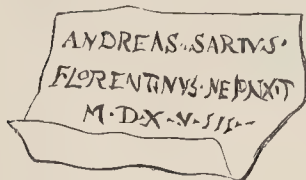 ANDREAS·SARTVS·
FLORENTINVS·NE PINXIT
M·D·X·V·III--